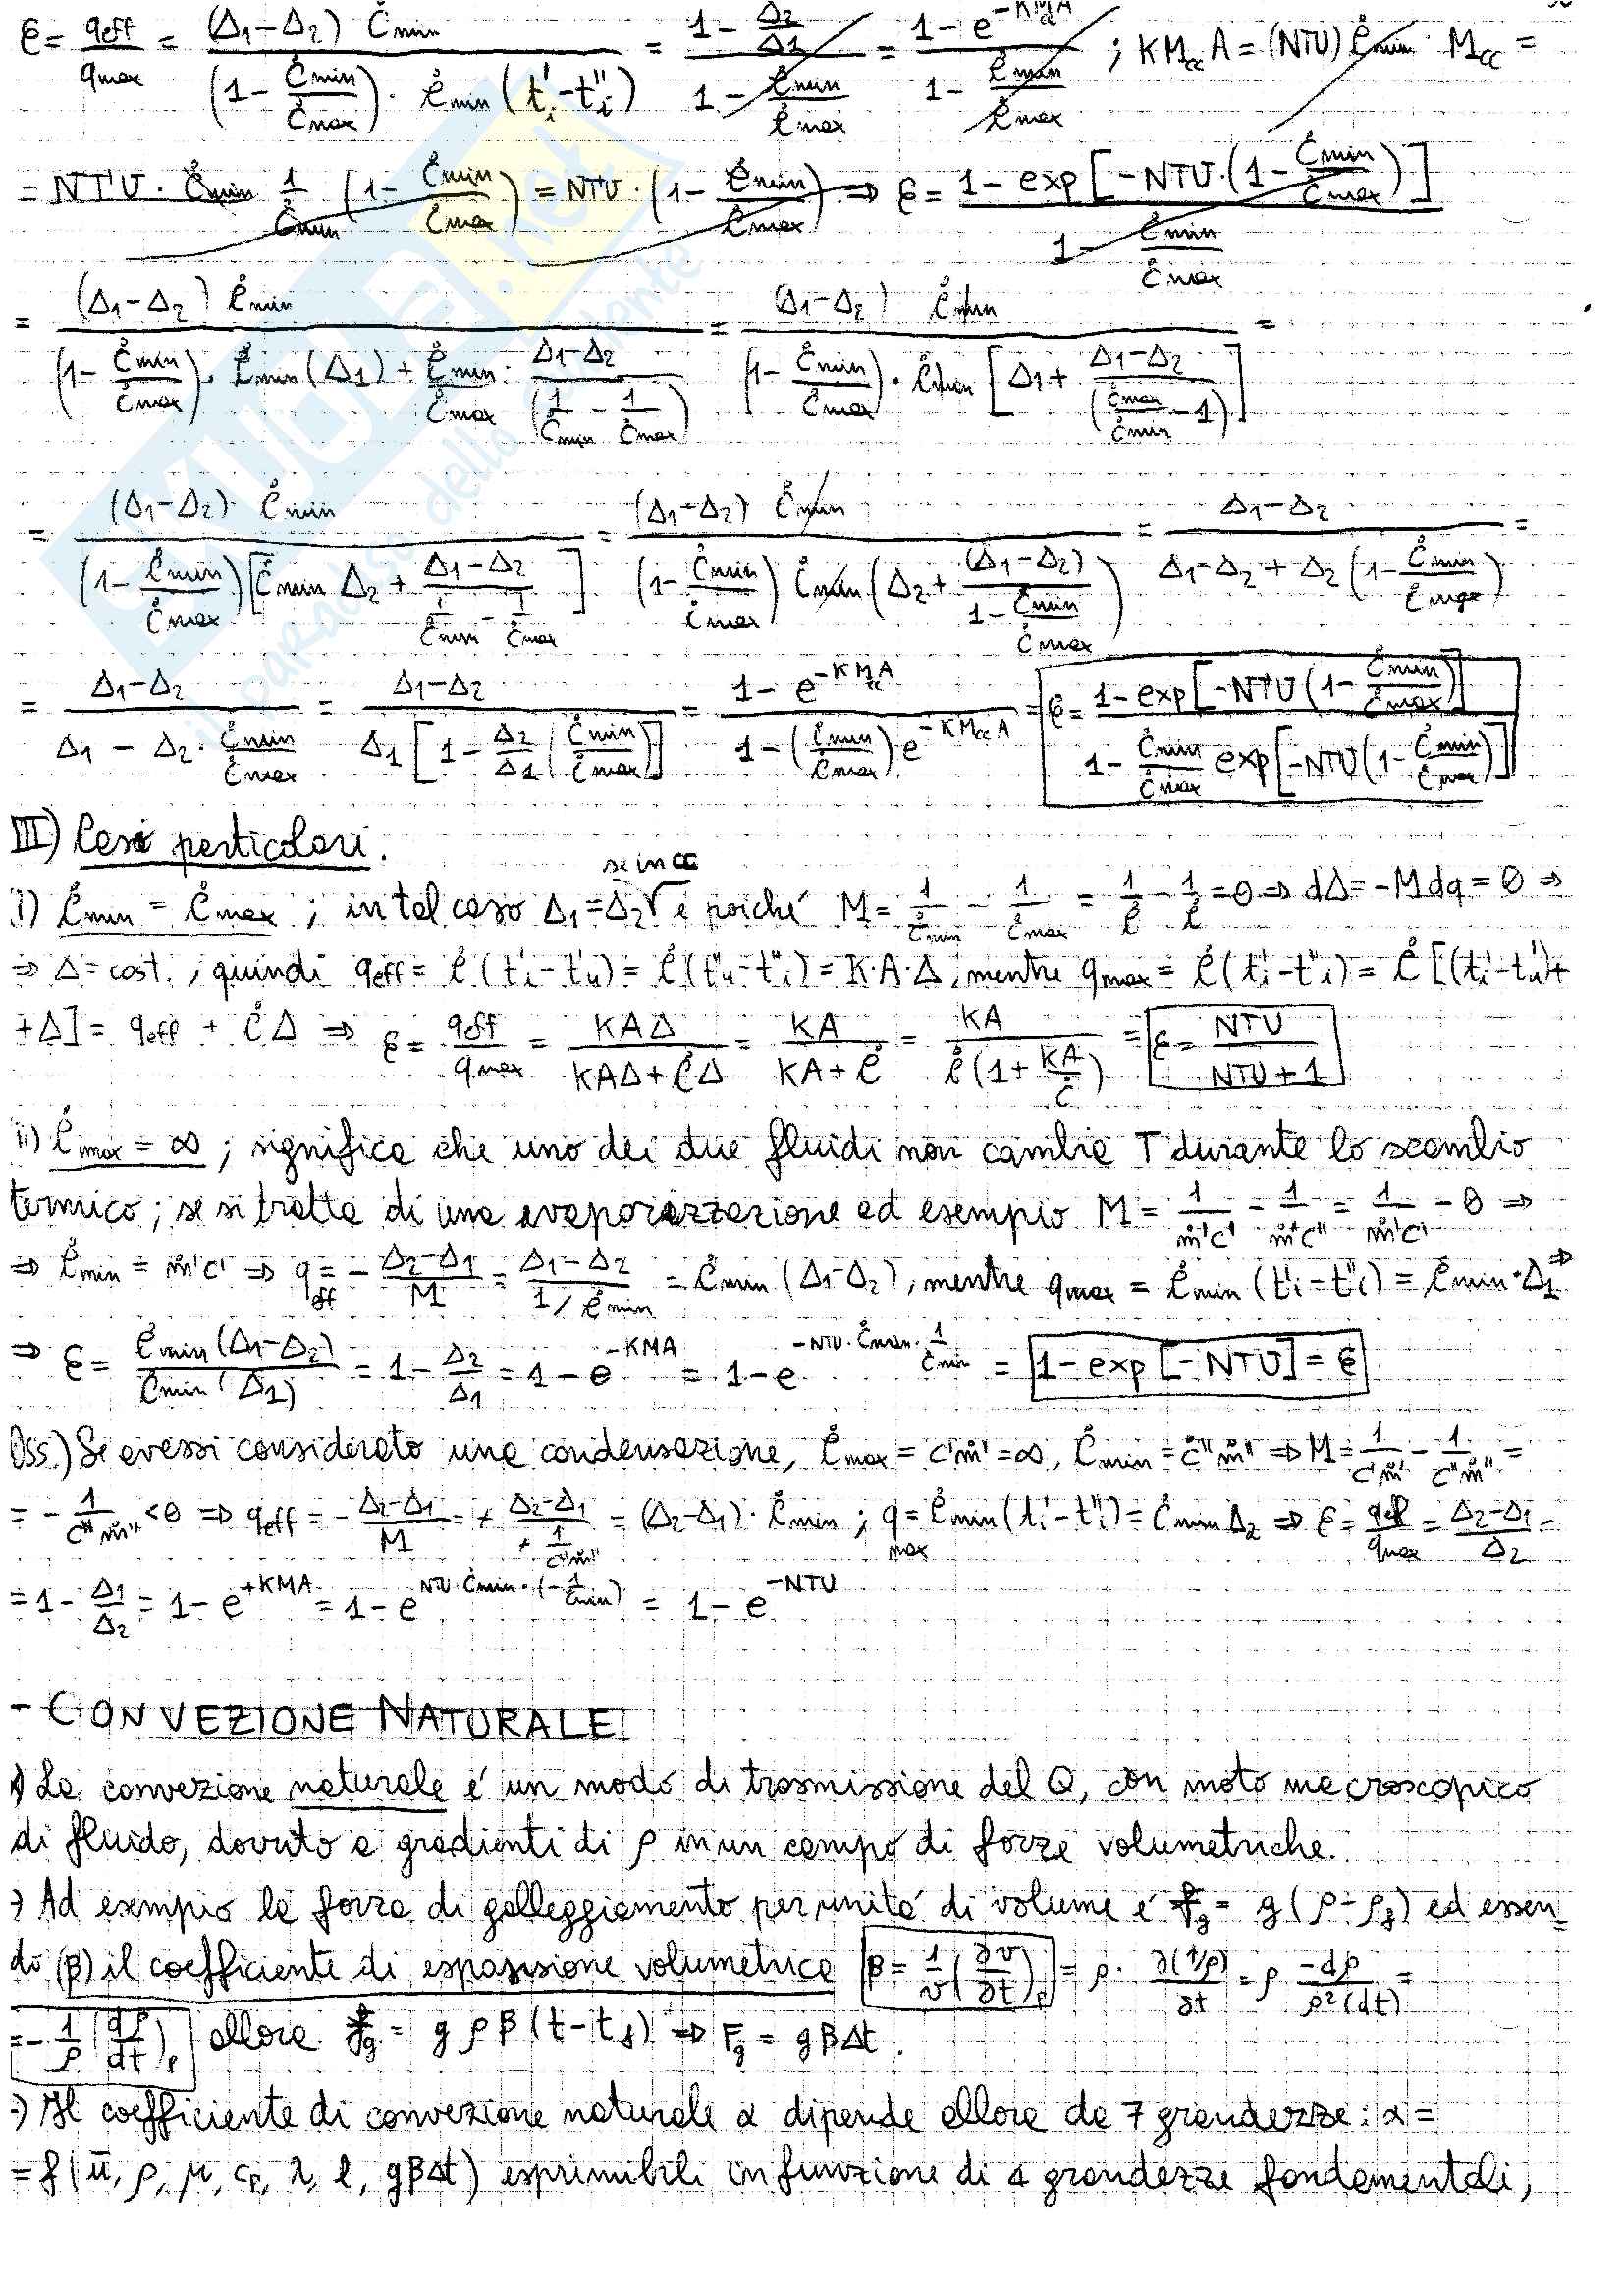 ε = q_eff / q_max = (Δ₁-Δ₂) Ċmin / (1 - Ċmin/Ċmax) · Ċmin (t'i - t''i) = 1 - Δ₂/Δ₁ / 1 - Ċmin/Ċmax = 1 - e^(-KMcc A) / 1 - Ċmin/Ċmax ; KMcc A = (NTU) Ċmin · Mcc =
= NTU · Ċmin 1/Ċmin (1 - Ċmin/Ċmax) = NTU · (1 - Ċmin/Ċmax) ⇒ ε = 1 - exp[-NTU·(1 - Ċmin/Ċmax)] / 1 - Ċmin/Ċmax
= (Δ₁-Δ₂) Ċmin / (1 - Ċmin/Ċmax) · Ċmin (Δ₁) + Ċmin/Ċmax · Δ₁-Δ₂ / (1/Ċmin - 1/Ċmax) = (Δ₁-Δ₂) Ċmin / (1 - Ċmin/Ċmax) · Ċmin [Δ₁ + Δ₁-Δ₂ / (Ċmax/Ċmin - 1)] =
= (Δ₁-Δ₂) · Ċmin / (1 - Ċmin/Ċmax) [Ċmin Δ₂ + Δ₁-Δ₂ / 1/Ċmin - 1/Ċmax] = (Δ₁-Δ₂) Ċmin / (1 - Ċmin/Ċmax) Ċmin (Δ₂ + (Δ₁-Δ₂) / 1 - Ċmin/Ċmax) = Δ₁-Δ₂ / Δ₁-Δ₂ + Δ₂ (1 - Ċmin/Ċmax) =
= Δ₁-Δ₂ / Δ₁ - Δ₂ · Ċmin/Ċmax = Δ₁-Δ₂ / Δ₁ [1 - Δ₂/Δ₁ (Ċmin/Ċmax)] = 1 - e^(-KMcc A) / 1 - (Ċmin/Ċmax) e^(-KMcc A) = ε = 1 - exp[-NTU (1 - Ċmin/Ċmax)] / 1 - Ċmin/Ċmax exp[-NTU (1 - Ċmin/Ċmax)]
III) Casi particolari.
i) Ċmin = Ċmax ; in tal caso Δ₁ = Δ₂ √ se in CC è poiché M = 1/Ċmin - 1/Ċmax = 1/Ċ - 1/Ċ = 0 ⇒ dΔ = -M dq = 0 ⇒
⇒ Δ = cost. , quindi q_eff = Ċ (t'i - t'u) = Ċ (t''u - t''i) = K·A·Δ , mentre q_max = Ċ (t'i - t''i) = Ċ [(t'i - t'u) +
+Δ] = q_eff + ĊΔ ⇒ ε = q_eff / q_max = KAΔ / KAΔ + ĊΔ = KA / KA + Ċ = KA / Ċ (1 + KA/Ċ) = ε = NTU / NTU + 1
ii) Ċmax = ∞ ; significa che uno dei due fluidi non cambia T durante lo scambio
termico ; se si tratta di una evaporazzazione ad esempio M = 1/ṁ'c' - 1/ṁ''c'' = 1/ṁ'c' - 0 ⇒
⇒ Ċmin = ṁ'c' ⇒ q_eff = - Δ₂-Δ₁ / M = Δ₁-Δ₂ / 1/Ċmin = Ċmin (Δ₁-Δ₂) , mentre q_max = Ċmin (t'i - t''i) = Ċmin · Δ₁ ⇒
⇒ ε = Ċmin (Δ₁-Δ₂) / Ċmin (Δ₁) = 1 - Δ₂/Δ₁ = 1 - e^(-KMA) = 1 - e^(-NTU · Ċmin · 1/Ċmin) = 1 - exp[-NTU] = ε
Oss.) Se avessi considerato una condensazione, Ċmax = c'ṁ' = ∞ , Ċmin = c''ṁ'' ⇒ M = 1/c'ṁ' - 1/c''ṁ'' =
= - 1/c''ṁ'' < 0 ⇒ q_eff = - Δ₂-Δ₁ / M = + Δ₂-Δ₁ / + 1/c''ṁ'' = (Δ₂-Δ₁) · Ċmin ; q_max = Ċmin (t'i - t''i) = Ċmin Δ₂ ⇒ ε = q_eff / q_max = Δ₂-Δ₁ / Δ₂ =
= 1 - Δ₁/Δ₂ = 1 - e^(+KMA) = 1 - e^(NTU · Ċmin · (-1/Ċmin)) = 1 - e^(-NTU)
- CONVEZIONE NATURALE
·) La convezione naturale é un modo di trasmissione del Q, con moto macroscopico
di fluido, dovuto a gradienti di ρ in un campo di forze volumetriche.
·) Ad esempio la forza di galleggiamento per unità di volume é f_g = g (ρ - ρ_f) ed essen-
do (β) il coefficiente di espansione volumetrica β = 1/v (∂v/∂t)p = ρ · ∂(1/ρ)/∂t = ρ -dρ / ρ²(dt) =
= - 1/ρ (dρ/dt)p allora f_g = g ρ β (t - t_f) ⇒ F_g = g β Δt .
·) Il coefficiente di convezione naturale α dipende allora da 7 grandezze : α =
= f (ū, ρ, μ, cp, λ, l, gβΔt) esprimibili in funzione di 4 grandezze fondamentali,